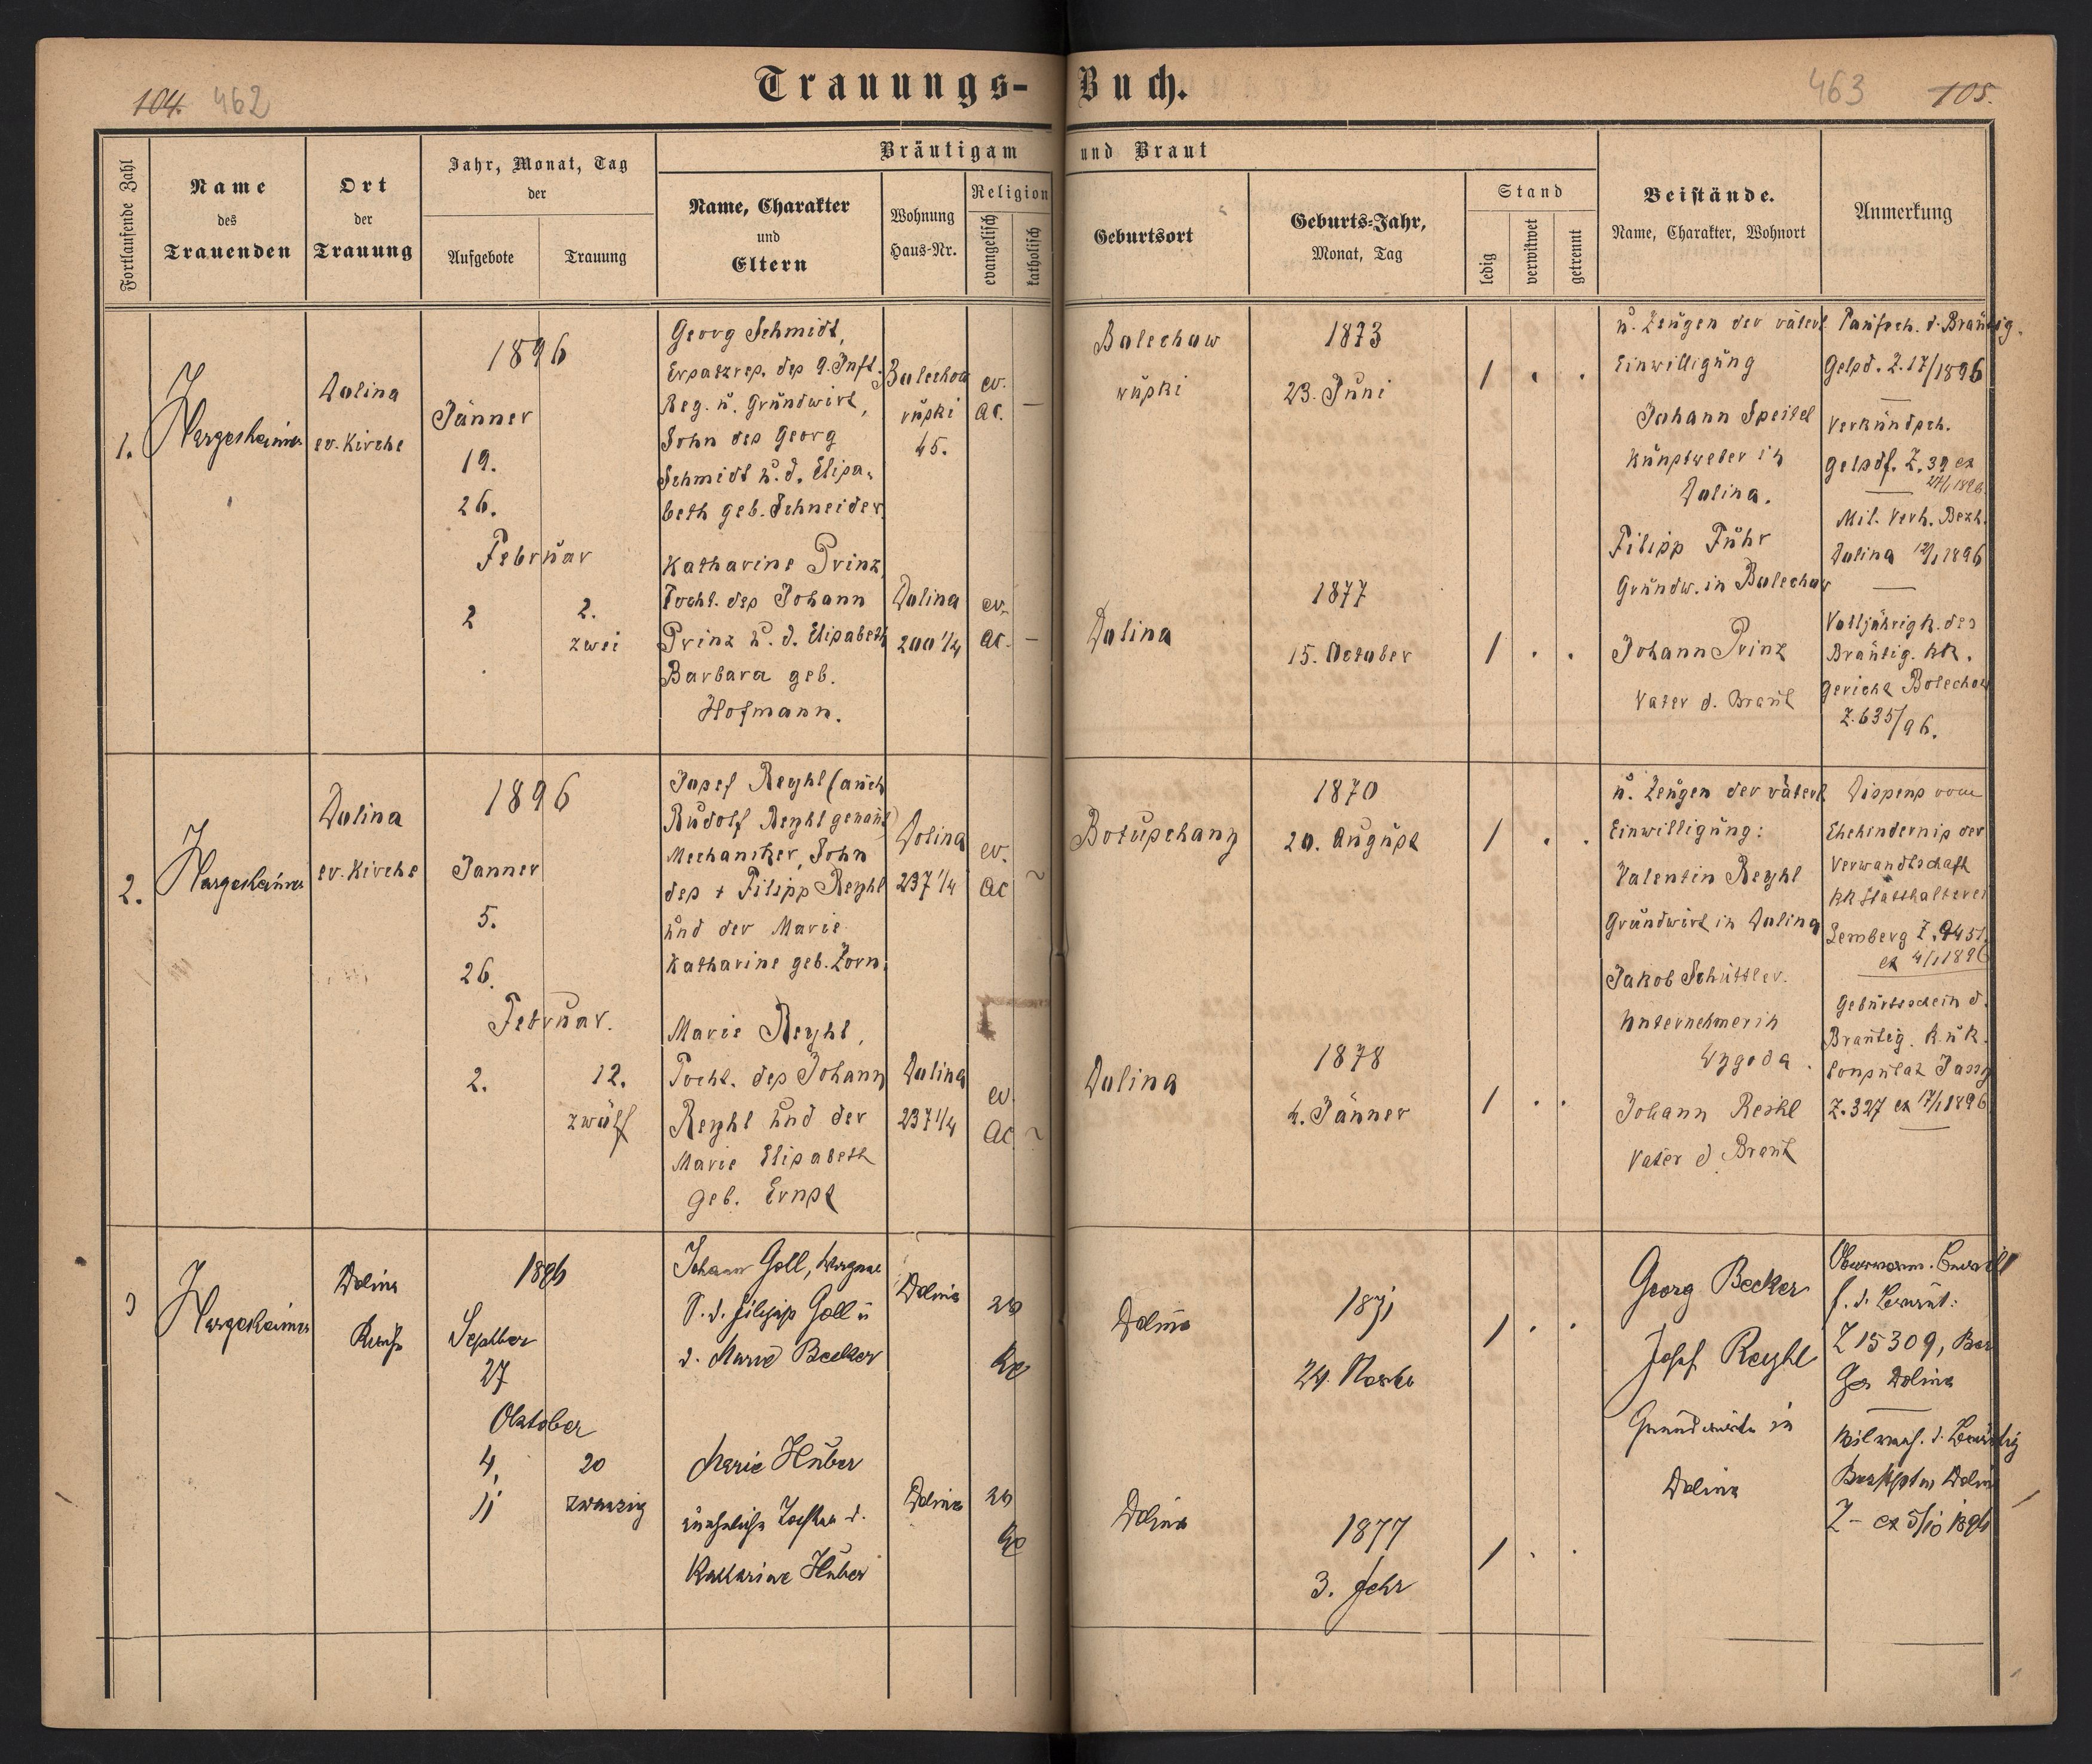 104. 462
Trauungs-Buch.
463 105.
Fortlaufende Zahl
Name
des
Trauenden
Ort
der
Trauung
Jahr, Monat, Tag
der
Aufgebote
Trauung
Bräutigam und Braut
Name, Charakter
und
Eltern
Wohnung
Haus-Nr.
Religion
evangelisch
katholisch
Geburtsort
Geburts-Jahr,
Monat, Tag
Stand
ledig
verwitwet
getrennt
Beistände.
Name, Charakter, Wohnort
Anmerkung
1.
J Hargesheimer
Dolina
ev. Kirche
1896
Jänner
19.
26.
Februar
2
2.
zwei
Georg Schmidt,
Ersatzres. des 9. Inft.
Reg. u. Grundwirt,
Sohn des Georg
Schmidt u. d. Elisa-
beth geb. Schneider.
Bolechow
ruski
45.
ev.
AC. —
Bolechow
ruski
1873
23. Juni
1 . .
Katharine Prinz,
Tocht. des Johann
Prinz u. d. Elisabeth
Barbara geb.
Hofmann.
Dolina
200 1/4
ev.
AC. —
Dolina
1877
15. October
1 . .
u. Zeugen der väterl.
Einwilligung
Johann Speitel
Kunstweber in
Dolina.
Filipp Fuhr
Grundw. in Bolechow
Johann Prinz
Vater d. Braut
Taufsch. d. Bräutig.
Gelsd. Z. 17/1896
Verkündsch.
Gelsdf. Z. 39 ex
27/1 1896.
Mil. Verh. Bezh.
Dolina 12/1 1896
Volljährigk. des
Bräutig. kk.
Gericht Bolechow
Z. 635/96.
2.
J Hargesheimer
Dolina
ev. Kirche
1896
Janner
5.
26.
Februar.
2.
12.
zwölf
Josef Reyhl (auch
Rudolf Reyhl genant)
Mechaniker, Sohn
des + Filipp Reyhl
und der Marie
Katharine geb. Zorn.
Dolina
237 1/4
ev.
AC
Botuschany
1870
20. August
1 . .
Marie Reyhl,
Tocht. des Johann
Reyhl und der
Marie Elisabeth
geb. Ernst
Dolina
237 1/4
ev.
AC
Dolina
1878
4. Jänner
1 . .
u. Zeugen der väterl.
Einwilligung:
Valentin Reyhl
Grundwirt in Dolina
Jakob Schüttler.
Unternehmer in
Wygoda.
Johann Reihl
Vater d. Braut
Dispens vom
Ehehindernis der
Verwandtschaft
kk Statthalterei
Lemberg Z. 9451.
ex 4/1 1896
Geburtsschein d.
Bräutig. k. u k.
Consulat Jassy
Z. 327 ex 17/1 1896
3
J Hargesheimer
Dolina
Kirche
1896
Septber
27
Oktober
4,
11
20
zwanzig
Johann Goll, Wagner
S. d. Filipp Goll u
d. Marie Becker
Dolina
Dolina
1871
24. Novbr
1 . .
Marie Huber
uneheliche Tochter d.
Katharine Huber
Dolina
Dolina
1877
3. Febr
1 . .
Georg Becker
Josef Reyhl
Grundwirte in
Dolina
f. d. Bräut:
Z 15309, Bez
Ger Dolina
Dolina
Z — ex 5/10 1896